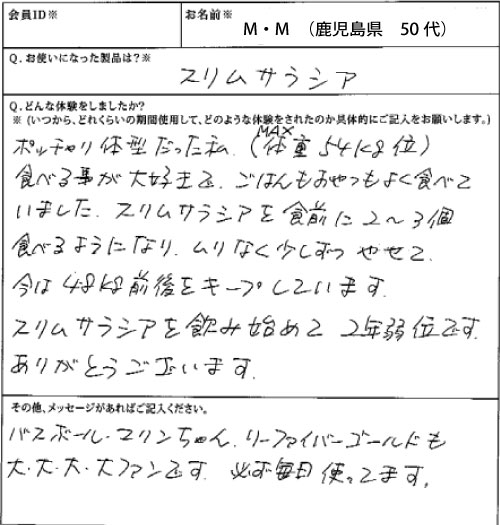 会員ID※
お名前※
M・M （鹿児島県 50代）
Q. お使いになった製品は？※
スリムサラシア
Q. どんな体験をしましたか？
※（いつから、どれくらいの期間使用して、どのような体験をされたのか具体的にご記入をお願いします。）
ポッチャリ体型だった私.（MAX体重54kg位）
食べる事が大好きで、ごはんもおやつもよく食べて
いました. スリムサラシアを食前に2〜3個
食べるようになり. ムリなく少しずつ やせて.
今は48kg前後をキープしています.
スリムサラシアを飲み始めて 2年弱位です.
ありがとうございます.
その他、メッセージがあればご記入ください。
バスボール・マリンちゃん. リーファイバーゴールドも
大・大・大・大ファンです. 必ず毎日使ってます.